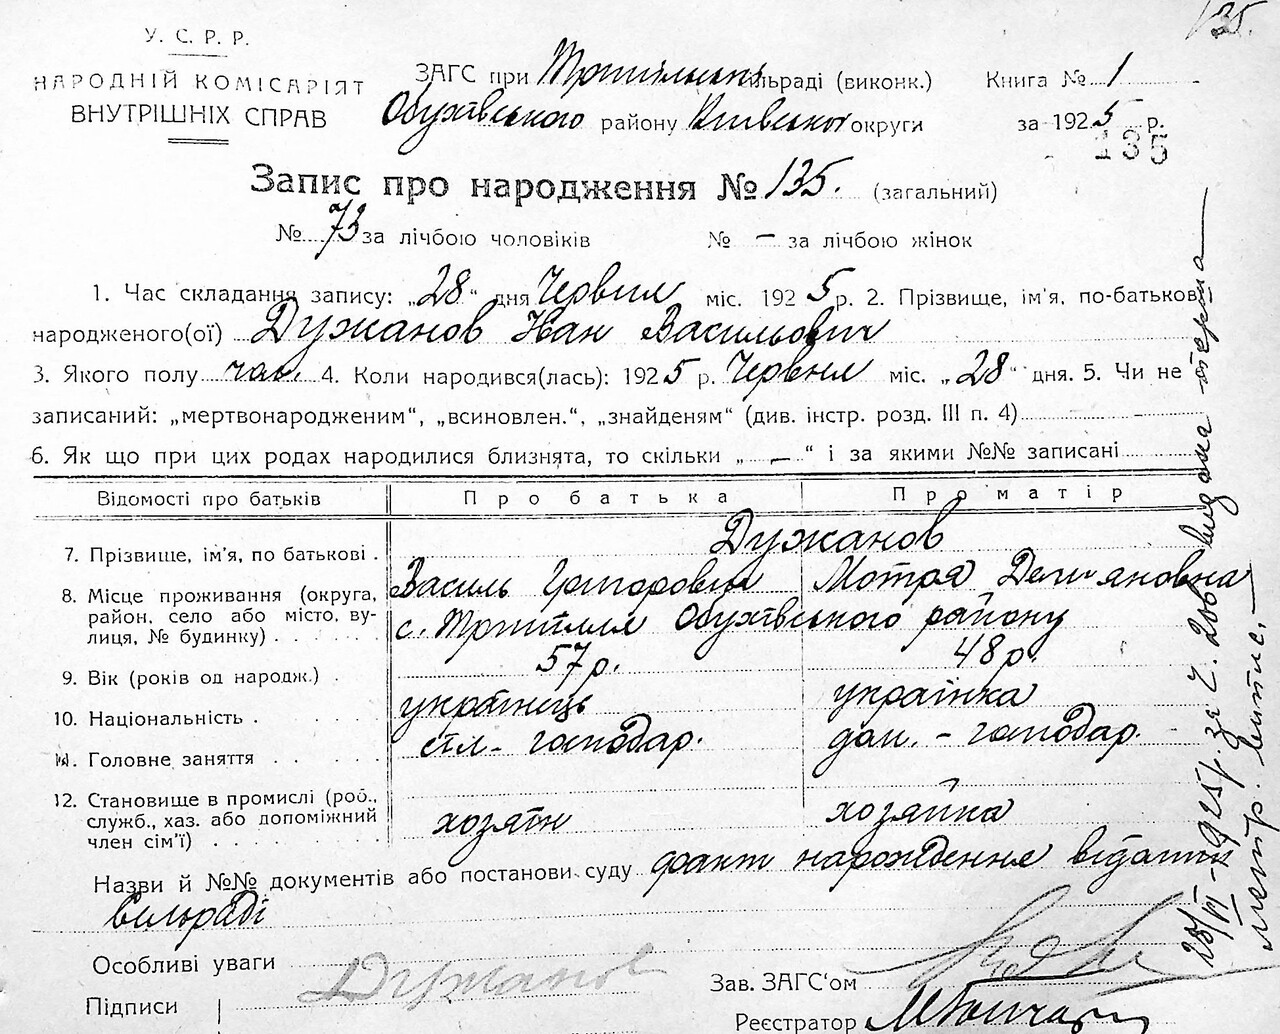 135.
У. С. Р. Р.
НАРОДНІЙ КОМІСАРІЯТ
ВНУТРІШНІХ СПРАВ
ЗАГС при Трипільськ ільраді (виконк.)
Обухівського району Київської округи
Книга № 1
за 1925 р.
135
Запис про народження № 135. (загальний)
№ 73 за лічбою чоловіків № — за лічбою жінок
1. Час складання запису: „28" дня Червня міс. 1925 р. 2. Прізвище, ім'я, по-батькові
народженого(ої) Дужанов Іван Васильович
3. Якого полу чол. 4. Коли народився(лась): 1925 р. Червня міс. „28" дня. 5. Чи не
записаний: „мертвонародженим", „всиновлен.", „знайденям" (див. інстр. розд. III п. 4)
6. Як що при цих родах народилися близнята, то скільки „ — " і за якими №№ записані
Відомості про батьків Про батька Про матір
7. Прізвище, ім'я, по батькові . Дужанов
Василь Григорович Мотря Демяновна
8. Місце проживання (округа,
район, село або місто, ву-
лиця, № будинку) . . . . . с. Трипілля Обухівського району
9. Вік (років од народж.) . 57 р. 48 р.
10. Національність . українець українка
11. Головне заняття . сіл.- господар. дом. - господар.
12. Становище в промислі (роб.,
служб., хаз. або допоміжний
член сім'ї) . хозяїн хозяйка
Назви й №№ документів або постанови суду факт нарождення відомий
сільраді
Особливі уваги
Підписи Дужанов
Зав. ЗАГС'ом
Реєстратор
28/VI - 1925 р. за № видома
метр. випис. —